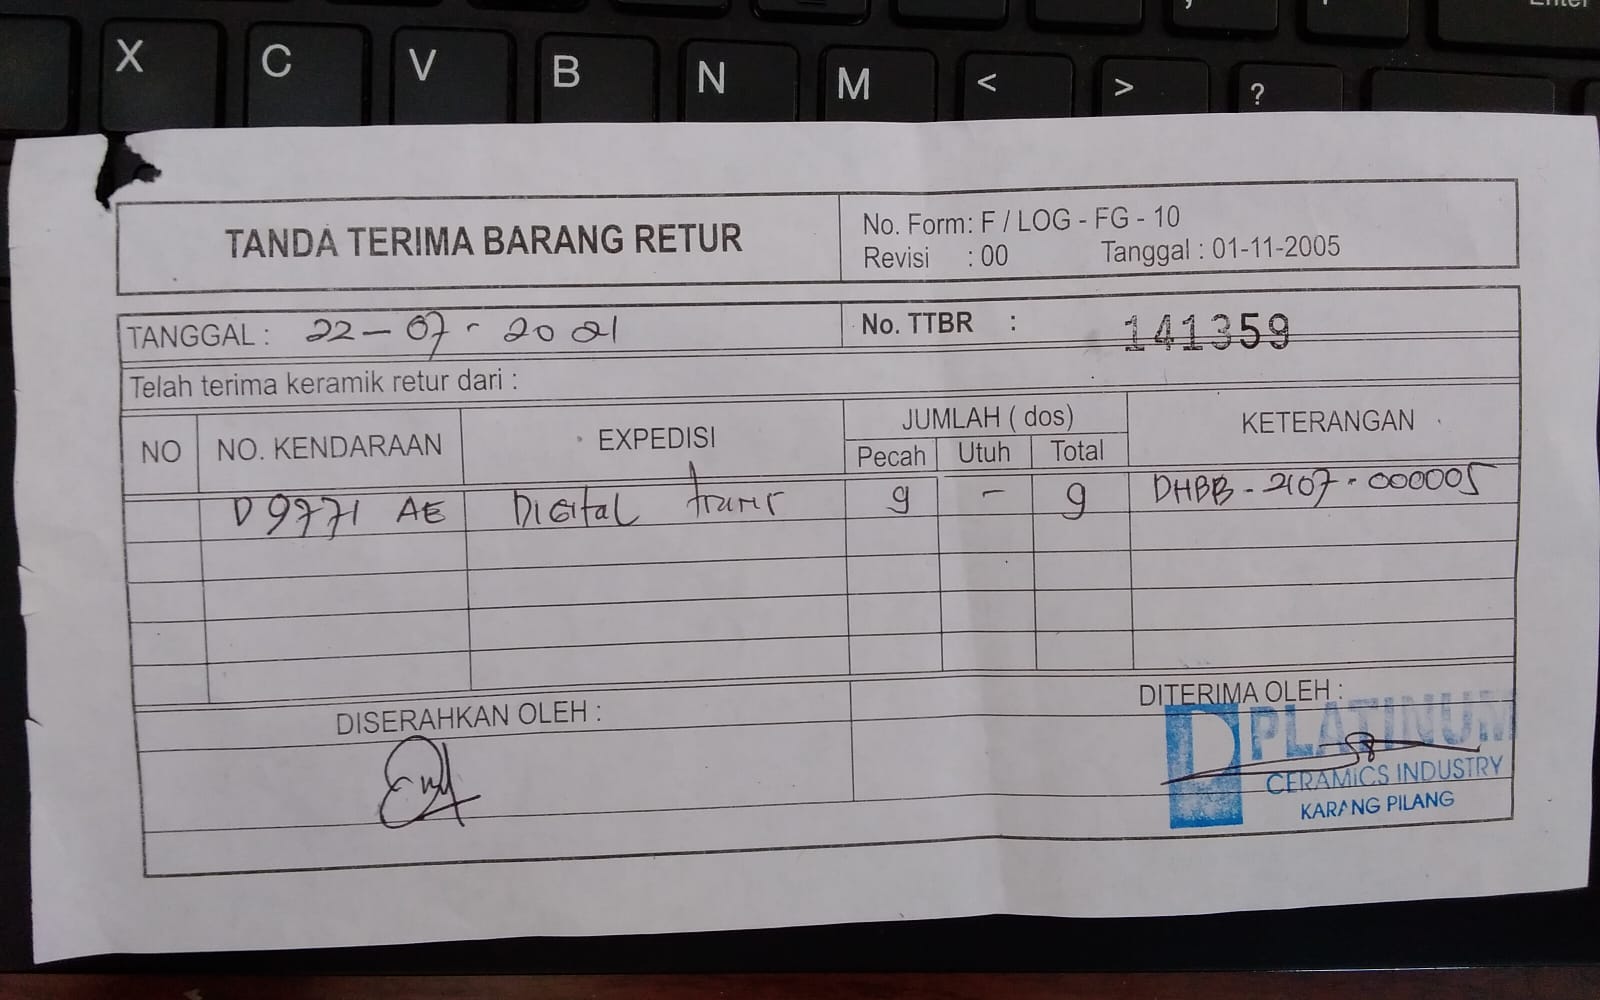 Enter
X C V B N M < > ?
TANDA TERIMA BARANG RETUR
No. Form: F / LOG - FG - 10
Revisi : 00 Tanggal : 01-11-2005
TANGGAL : 22-07-2021
No. TTBR : 141359
Telah terima keramik retur dari :
NO NO. KENDARAAN EXPEDISI JUMLAH ( dos) KETERANGAN
Pecah Utuh Total
D 9771 AE Digital trans 9 - 9 DHBB-2107-000005
DISERAHKAN OLEH :
DITERIMA OLEH :
PLATINUM
CERAMICS INDUSTRY
KARANG PILANG